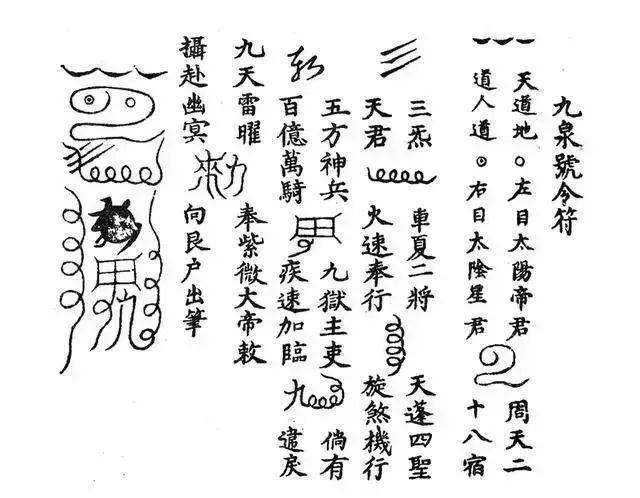 九泉號令符
天道地○左目太陽帝君 周天二
道人道⊙右目太陰星君 十八宿
三炁 車夏二將 天蓬四聖
天君 火速奉行 旋煞機行
五方神兵 九獄主吏 倘有
百億萬騎 疾速加臨 九 違戾
九天雷曜 奉紫微大帝敕
攝赴幽冥 向艮户出筆